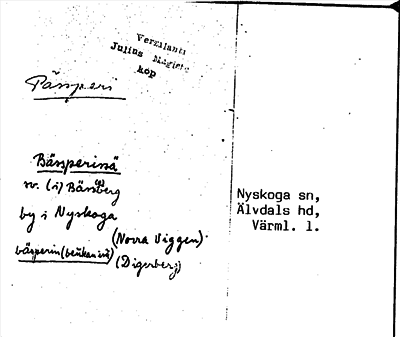 Värmlants
Julius Mägiste
kop
Pässperi
Bässperissä
sv. (i) Bäss(e)berg
by i Nyskoga
(Norra Viggen)
bässperin (beükanissi)
(Digerberg)
Nyskoga sn,
Älvdals hd,
Värml. l.